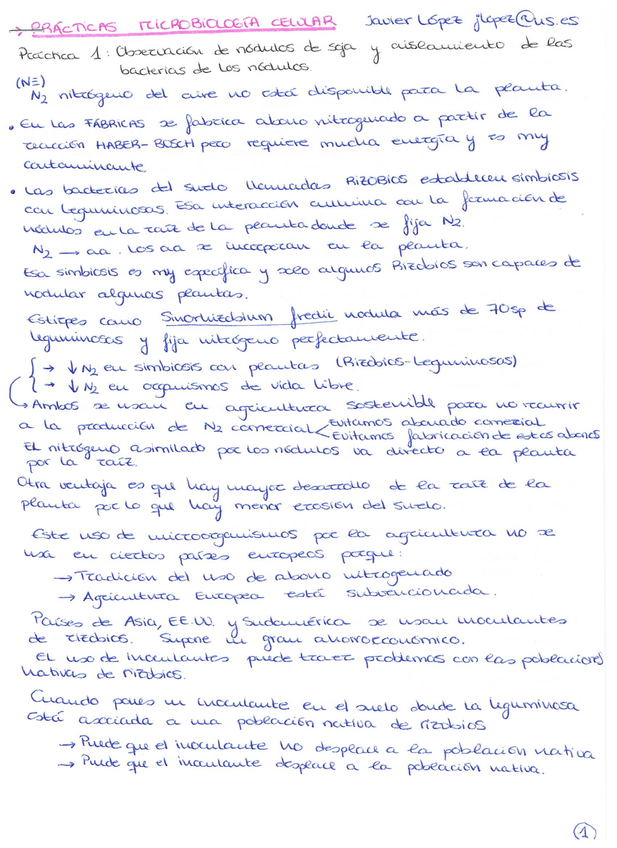 → PRÁCTICAS MICROBIOLOGÍA CELULAR Javier López jlopez@us.es
Práctica 1: Observación de nódulos de soja y aislamiento de las
bacterias de los nódulos.
(N≡)
N2 nitrógeno del aire no está disponible para la planta.
• En las FÁBRICAS se fabrica abono nitrogenado a partir de la
reacción HABER-BOSCH pero requiere mucha energía y es muy
contaminante.
• Las bacterias del suelo llamadas RIZOBIOS establecen simbiosis
con leguminosas. Esa interacción culmina con la formación de
nódulos en la raíz de la planta donde se fija N2.
N2 → aa. Los aa se incorporan en la planta.
Esa simbiosis es muy específica y solo algunos Rizobios son capaces de
nodular algunas plantas.
Estirpes como Sinorhizobium fredii nodula más de 70sp de
leguminosas y fija nitrógeno perfectamente.
→ ↓ N2 en simbiosis con plantas (Rizobios-Leguminosas)
→ ↓ N2 en organismos de vida libre.
→ Ambos se usan en agricultura sostenible para no recurrir
a la producción de N2 comercial < Evitamos abonado comercial
Evitamos fabricación de estos abonos
El nitrógeno asimilado por los nódulos va directo a la planta
por la raíz.
Otra ventaja es que hay mayor desarrollo de la raíz de la
planta por lo que hay menor erosión del suelo.
Este uso de microorganismos por la agricultura no se
usa en ciertos países europeos porque:
→ Tradición del uso de abono nitrogenado
→ Agricultura Europea está subvencionada.
Países de Asia, EE.UU. y Sudamérica se usan inoculantes
de rizobios. Supone un gran ahorro económico.
El uso de inoculantes puede traer problemas con las poblaciones
nativas de rizobios.
Cuando pones un inoculante en el suelo donde la leguminosa
está asociada a una población nativa de rizobios
→ Puede que el inoculante no desplace a la población nativa
→ Puede que el inoculante desplace a la población nativa.
1